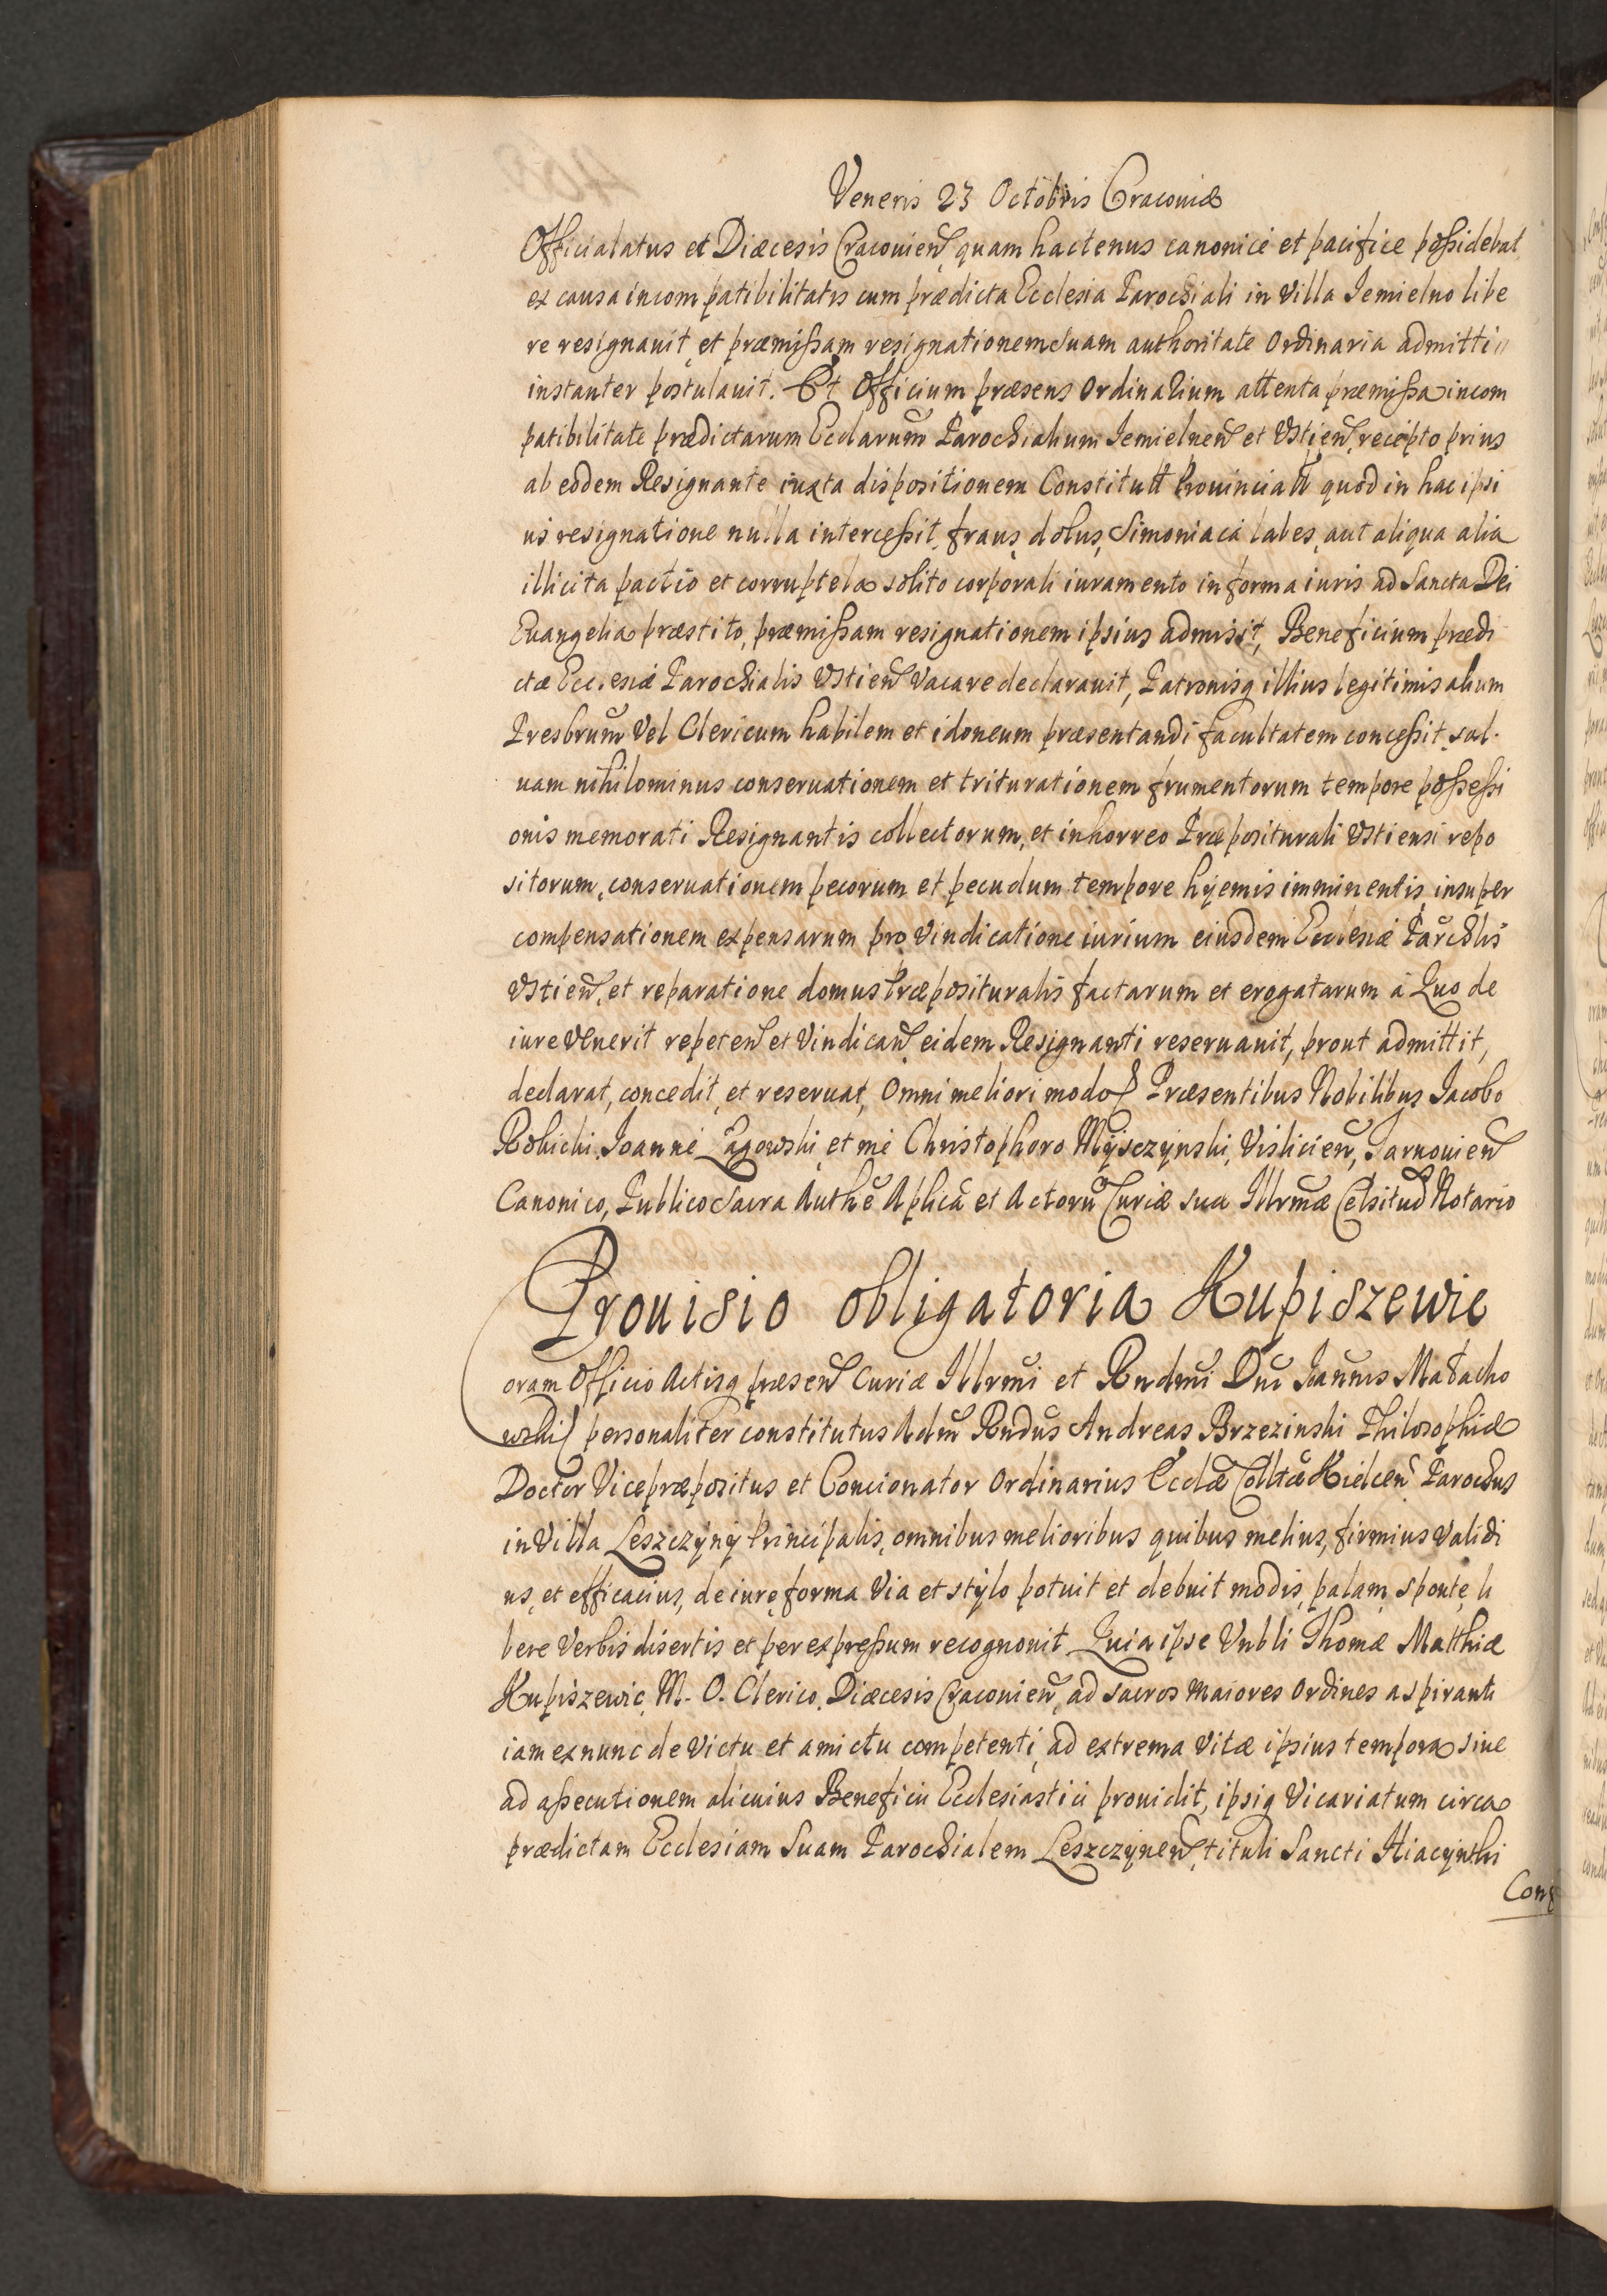 Veneris 23 Octobris Cracouiæ
Officialatus et Diæcesis Cracouien̄, quam hactenus canonice et pacifice poßidebat,
ex causa incompatibilitatis cum prædicta Ecclesia Parochiali in Villa Jemielno libe
re resignauit, et præmißam resignationem suam authoritate Ordinaria admitti
instanter postulauit. Et Officium præsens Ordinarium attenta præmißa incom
patibilitate prædictarum Ecclarum̄ Parochialium Jemielnen̄ et Vstien̄, recepto prius
ab eodem Resignante iuxta dispositionem Constitutt Prouinciatt quod in hac ipsi
us resignatione nulla interceßit, fraus, dolus, Simoniaca labes, aut aliqua alia
illicita pactio et corruptela solito corporali iuramento in forma iuris ad Sancta Dei
Euangelia præstito, præmißam resignationem ipsius admisit, Beneficium prædi
ctæ Ecclesiæ Parochialis Vstien̄ Vacare declarauit, Patronisq illius legitimis alium
Presbrum̄ Vel Clericum habilem et idoneum præsentandi facultatem conceßit, sal.
uam nihilominus conseruationem et triturationem frumentorum tempore poßeßi
onis memorati Resignantis collectorum, et in horreo Præpositurali Vstiensi repo
sitorum, conseruationem pecorum et pecudum tempore hyemis imminentis, insuper
compensationem expensarum pro Vindicatione iurium eiusdem Ecclesiæ Parchlis̄
Vstien̄, et reparatione domus Præposituralis factarum et erogatarum à Quo de
iure Venerit repeten̄ et Vindican̄ eidem Resignanti reseruauit, prout admittit,
declarat, concedit, et reseruat, Omni meliori modo Præsentibus Nobilibus Jacobo
Rokicki, Joanne Łagowski, et me Christophoro Mysczynski, Vislicien̄, Tarnouien̄
Canonico, Publico Sacra Authē Aplicā et Actorū Curiæ suæ Illrm̄æ Celsitud̄ Notario
Prouisio obligatoria Kupiszewic
oram Officio Actisq præsen̄ Curiæ Illrmi et Rndmi Dni Joannis Małacho
wski personaliter constitutus Adm̄ Rndus Andreas Brzezinski Philosophiæ
Doctor Vicepræpositus et Concionator Ordinarius Ecclæ Colltæ Kielcen̄ Parochus
in Villa Leszczyny Principalis, omnibus melioribus quibus melius, firmius Validi
us, et efficacius, de iure, forma Via et stylo potuit et debuit modis, palam, sponte, li
bere Verbis disertis et per expreßum recognouit. Quia ipse Vnbli Thomæ Matthiæ
Kupiszewic, M. O. Clerico, Diæcesis Cracouien̄, ad sacros Maiores Ordines aspiranti
iam ex nunc de Victu et amictu competenti, ad extrema Vitæ ipsius tempora siue
ad aßecutionem alicuius Beneficii Ecclesiastici prouidit, ipsiq Vicariatum circa
prædictam Ecclesiam Suam Parochialem Leszczynen̄, tituli Sancti Hiacynthi